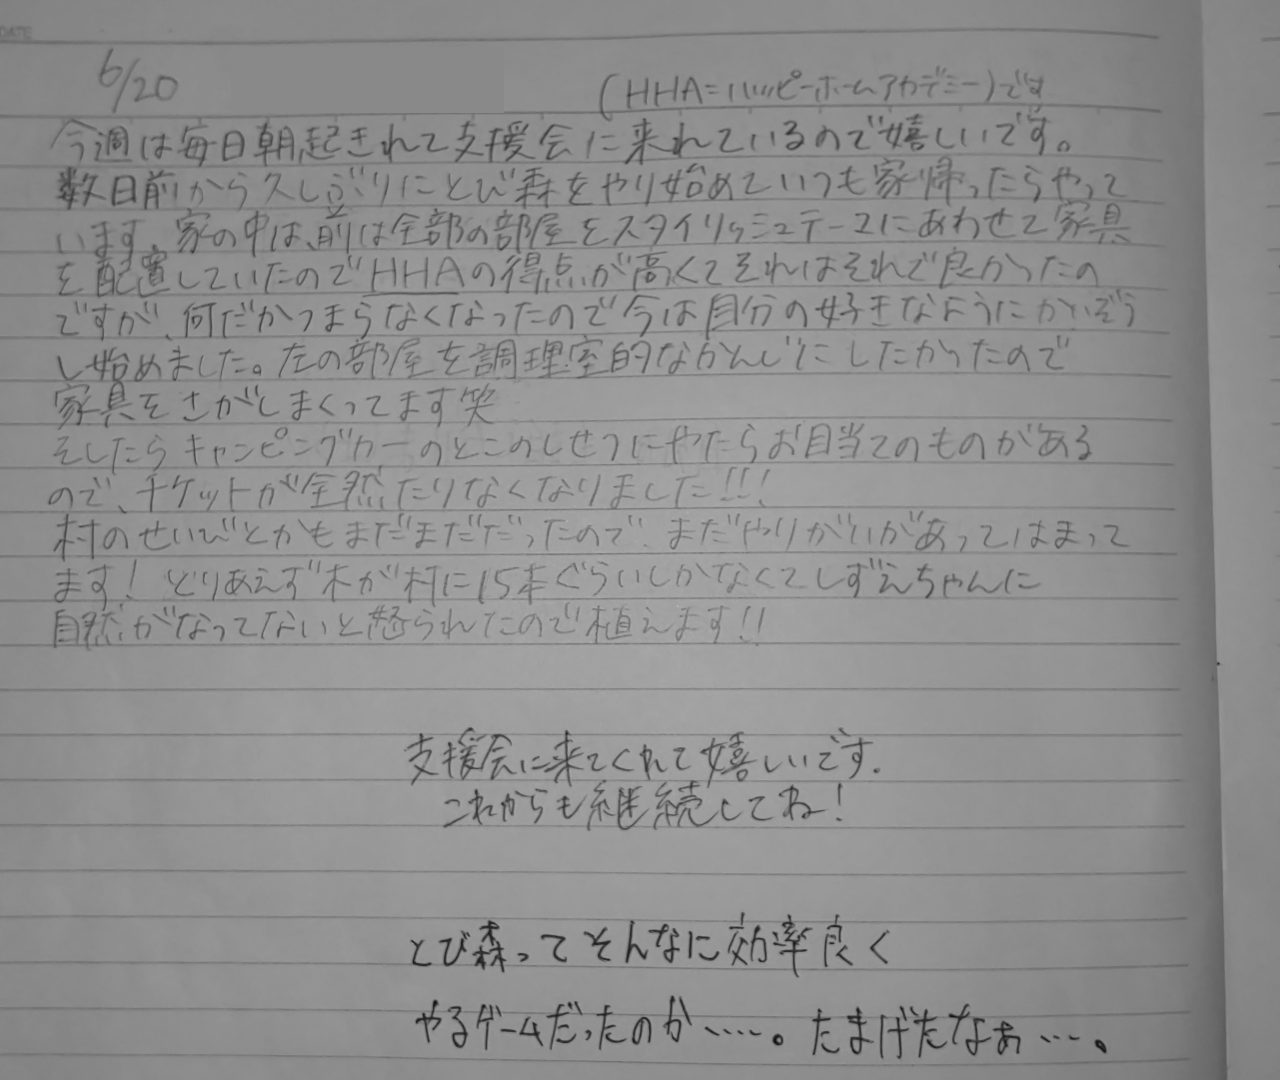 DATE
6/20
(HHA=ハッピーホームアカデミー)です
今週は毎日朝起きれて支援会に来れているので嬉しいです。
数日前から久しぶりにとび森をやり始めていつも家帰ったらやって
います。家の中は、前は全部の部屋をスタイリッシュテーマにあわせて家具
を配置していたのでHHAの得点が高くてそれはそれで良かったの
ですが、何だかつまらなくなったので今は自分の好きなようにかいぞう
し始めました。左の部屋を調理室的なかんじにしたかったので
家具をさがしまくってます笑
そしたらキャンピングカーのとこのしせつにやたらお目当てのものがある
ので、チケットが全然たりなくなりました!!!
村のせいびとかもまだまだだったので、まだやりがいがあってはまって
ます! とりあえず木が村に15本ぐらいしかなくてしずえちゃんに
自然がなってないと怒られたので植えます!!
支援会に来てくれて嬉しいです.
これからも継続してね!
とび森ってそんなに効率良く
やるゲームだったのか……。たまげたなぁ…。